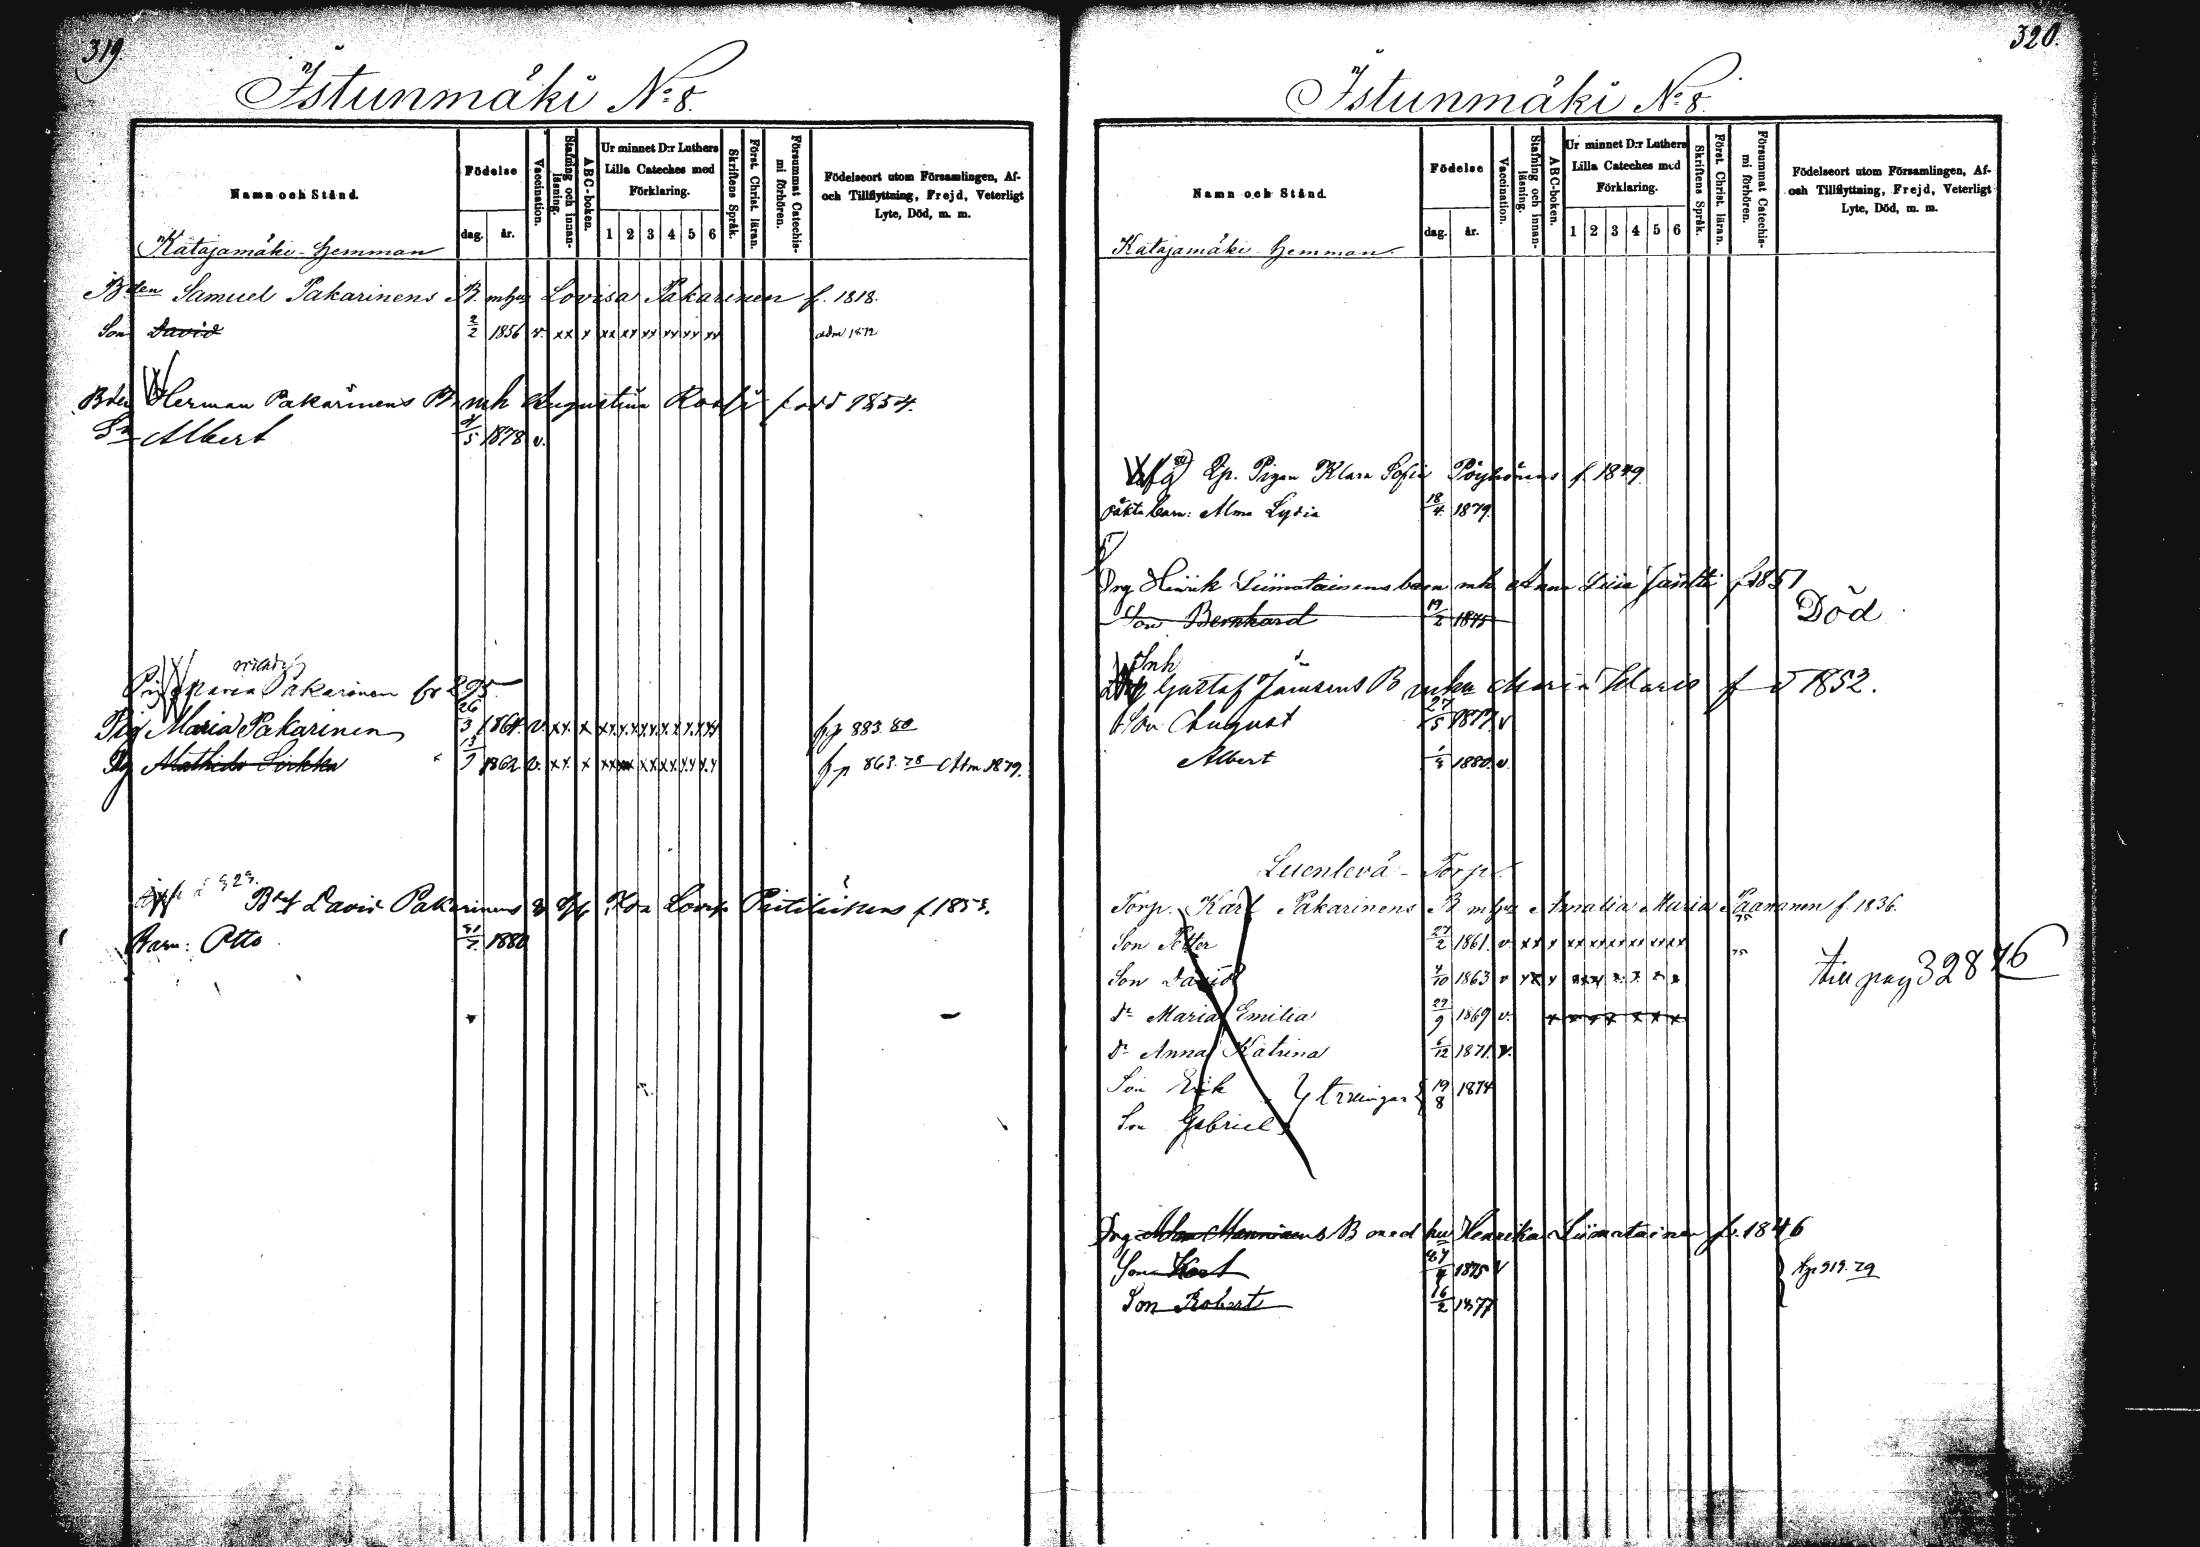 319
Istunmäki No 8.
Namn och Stånd.
Födelse
dag. år.
Vaccination.
Stafning och innanläsning.
ABC-boken.
Ur minnet D:r Luthers Lilla Cateches med Förklaring.
1 2 3 4 5 6
Skriftens Språk.
Först. Christ. läran.
Försummat Catechismi förhören.
Födelseort utom Församlingen, Af- och Tillflyttning, Frejd, Veterligt Lyte, Död, m. m.
Katajamäki Hemman
Bden Samuel Pakarinens B. mhu Lovisa Pakarinen f. 1818.
Son David 2/2 1856 v. xx x xx xx xx xx xx xx adm 1872
Bden Herman Pakarinens B. mh Augustina född 1854.
Sn Albert /5 1878 v.
Maria Pakarinen fr 295
Pig Maria Pakarinen 26/3 1864 v. xx x xx xx xx xx xx xx fp 883. 80
Pig 13/9 1862 v. xx x xx xx xx xx xx xx fp 863. 78 Adm 1879.
David Pakarinens f 1853.
Barn: Otto 31/7 1880
320.
Istunmäki No 8.
Namn och Stånd.
Födelse
dag. år.
Vaccination.
Stafning och innanläsning.
ABC-boken.
Ur minnet D:r Luthers Lilla Cateches med Förklaring.
1 2 3 4 5 6
Skriftens Språk.
Först. Christ. läran.
Försummat Catechismi förhören.
Födelseort utom Församlingen, Af- och Tillflyttning, Frejd, Veterligt Lyte, Död, m. m.
Katajamäki Hemman.
Pigan Klara Sofia Pöyhönens f. 1849.
oäkta barn: Alma Lydia 18/4 1879.
Drg Henrik Liimatainens barn mh Anna Liisa Jäntti f 1851
Son Bernhard 19/2 1875 Död
Inh
Gustaf Jämsens B mhu Maria f d 1852.
Son August 27/5 1877. v
Albert 1880. v.
Luenlevä Torp.
Torp. Karl Pakarinens B mhu Amalia Maria Paananen f. 1836.
Son Petter 27/2 1861. v xx x xx xx xx xx xx xx 75
Son David 4/10 1863 v xx x 75 till pag 328 76
Dr Maria Emilia 29/9 1869 v. x x x x x x x
Dr Anna Katrina 6/12 1871. v.
Son Erik } tvillingar { 19/8 1874
Son Gabriel
Drg Manninens B med hu Henrika Liimatainen f. 1846
Son Karl 1875 v
Son Robert 16/2 1877 tp 919. 79